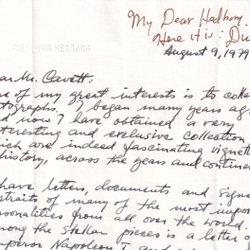 My Dear Hadbom.
Here it is: Du
August 9, 1979
ar Mr. Cavett.
e of my great interests is to colle
tographs. I began many years ag
d now I have obtained a very
teresting and exclusive collection
hich are indeed fascinating vignet
history, across the years and continen
have letters, documents and signe
traits of many of the most impor
rsonalities from all over the world
mong the stellar pieces is a letter
peror Napoleon I and